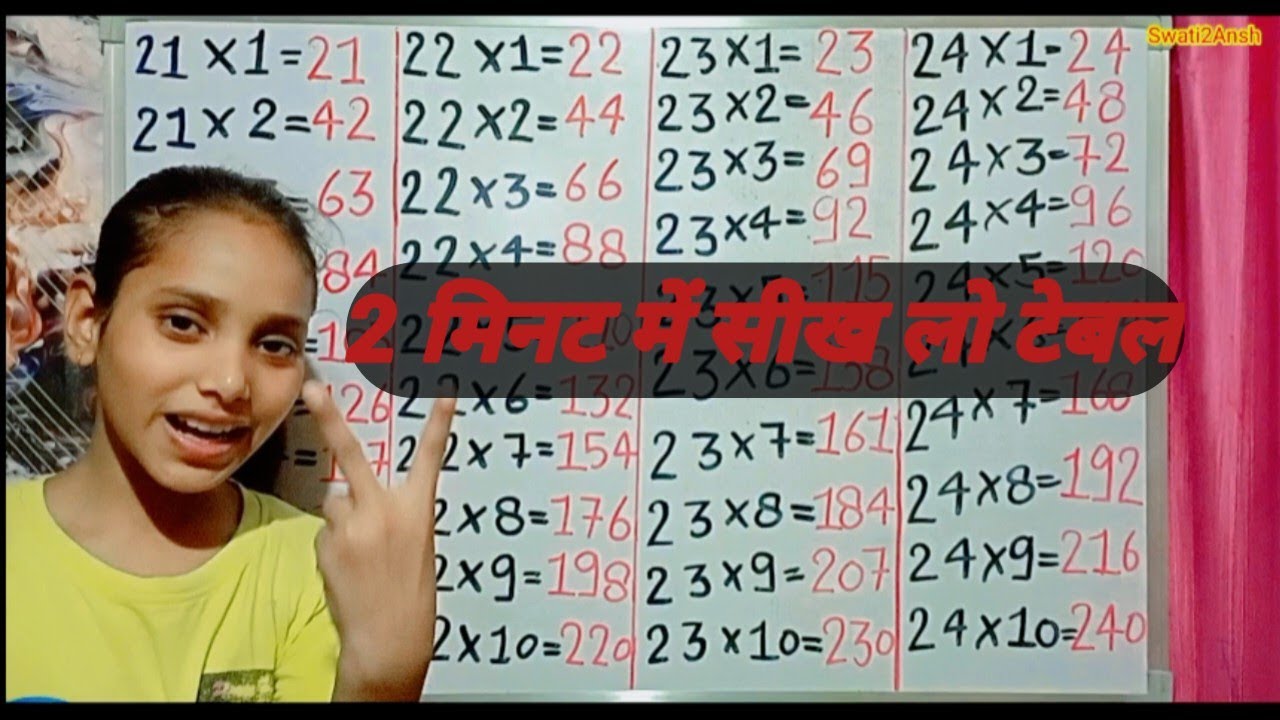 Swati2Ansh
21×1=21
21×2=42
=63
84
=126
22×1=22
22×2=44
22×3=66
22×4=88
22×6=132
22×7=154
2×8=176
2×9=198
2×10=220
23×1=23
23×2=46
23×3=69
23×4=92
23×5=115
23×6=138
23×7=161
23×8=184
23×9=207
23×10=230
24×1=24
24×2=48
24×3=72
24×4=96
24×5=120
24×7=168
24×8=192
24×9=216
24×10=240
2 मिनट में सीख लो टेबल